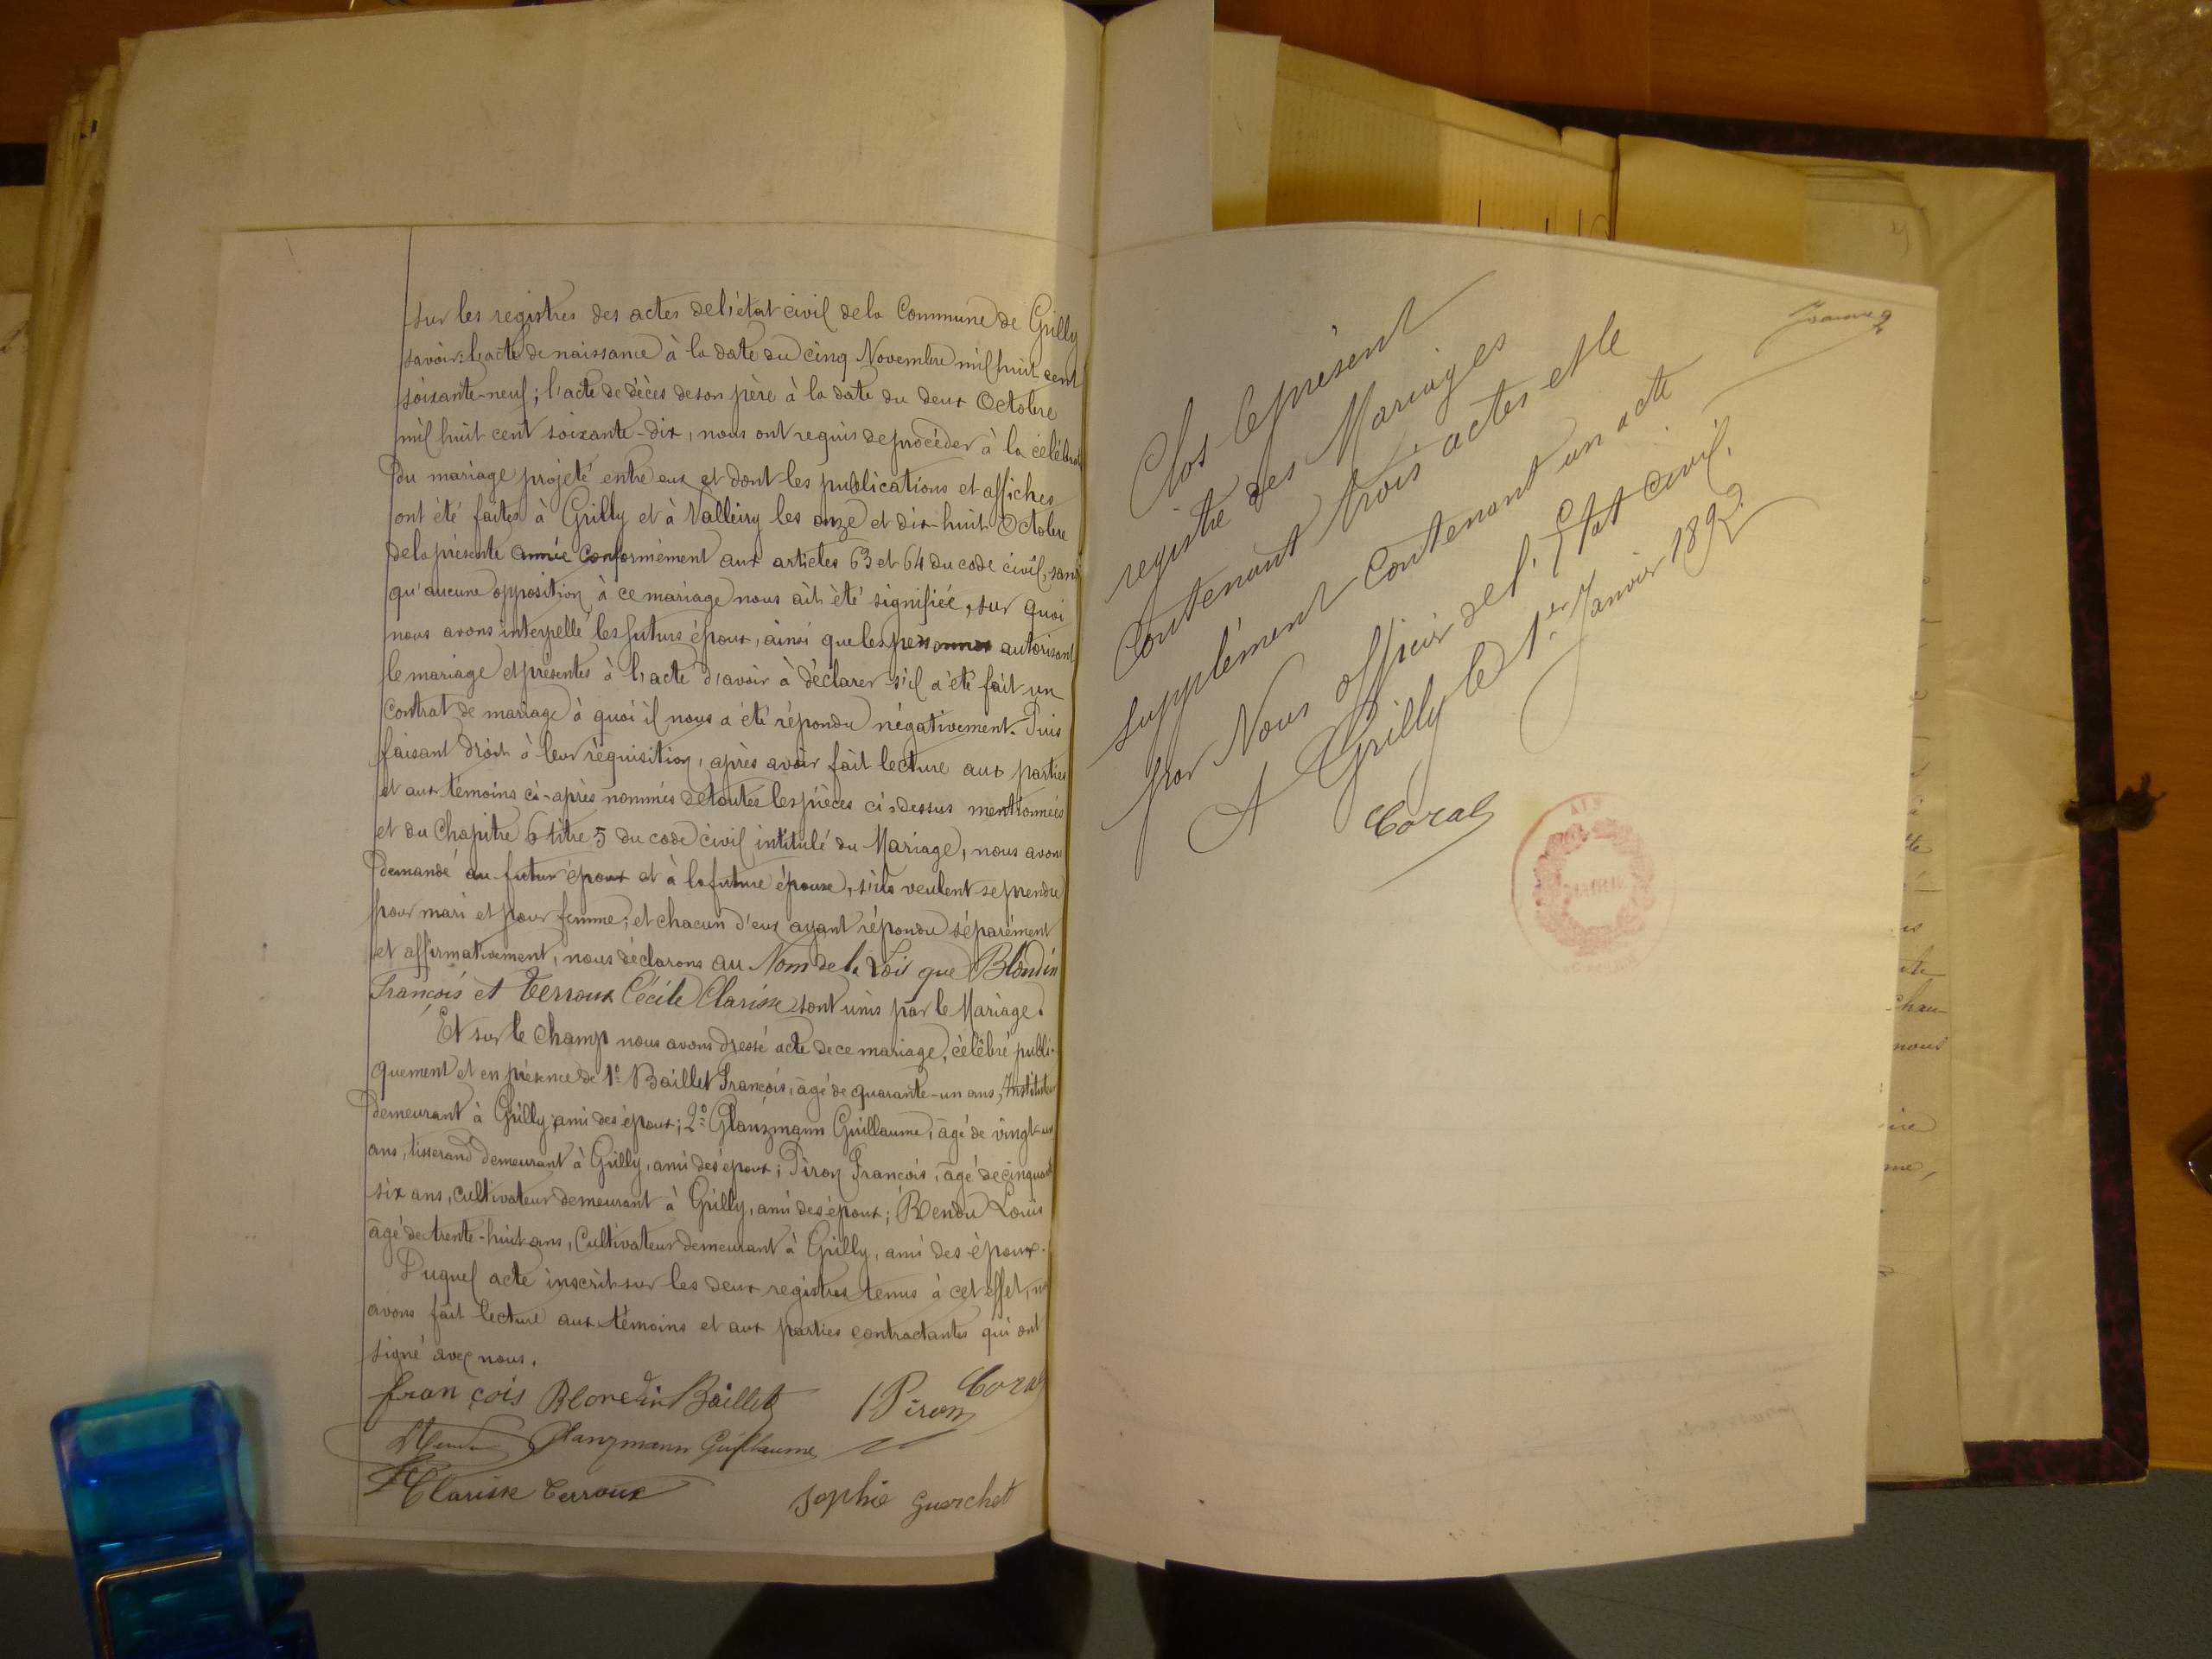 sur les registres des actes de l'état civil de la Commune de Grilly
savoir: l'acte de naissance à la date du cinq Novembre mil huit cent
soixante-neuf; l'acte de décès de son père à la date du deux Octobre
mil huit cent soixante-dix, nous ont requis de procéder à la célébra
du mariage projeté entre eux et dont les publications et affiches
ont été faites à Grilly et à Valleiry les onze et dix-huit Octobre
de la présente année conformément aux articles 63 et 64 du code civil, sans
qu'aucune opposition à ce mariage nous ait été signifiée, sur quoi
nous avons interpellé les futurs époux, ainsi que les personnes autorisant
le mariage et présentes à l'acte d'avoir à déclarer s'il a été fait un
contrat de mariage à quoi il nous a été répondu négativement. Puis
faisant droit à leur réquisition, après avoir fait lecture aux parties
et aux témoins ci-après nommés de toutes les pièces ci-dessus mentionnées
et du Chapitre 6 titre 5 du code civil intitulé du Mariage, nous avons
demandé au futur époux et à la future épouse, s'ils veulent se prendre
pour mari et pour femme; et chacun d'eux ayant répondu séparément
et affirmativement, nous déclarons au Nom de la Loi que Blondin
François et Terroux Cécile Clarisse sont unis par le Mariage.
Et sur le champ nous avons dressé acte de ce mariage, célébré publi-
quement et en présence de 1º Baillet François, âgé de quarante-un ans, Instituteur
demeurant à Grilly ami des époux; 2º Glanzmann Guillaume, âgé de vingt-un
ans, tisserand demeurant à Grilly, ami des époux; Piron François, âgé de cinquante
six ans, cultivateur demeurant à Grilly, ami des époux; Rendu Louis
âgé de trente-huit ans, Cultivateur demeurant à Grilly, ami des époux.
Duquel acte inscrit sur les deux registres tenus à cet effet, n
avons fait lecture aux témoins et aux parties contractantes qui ont
signé avec nous.
françois Blondin Baillet Piron Coral
Glanzmann Guillaume
Clarisse Terroux Sophie Guerchet
Clos le présent
registre des Mariages
Contenant trois actes et le
supplément Contenant un acte
par Nous officier de l'Etat civil.
A Grilly le 1er Janvier 1892
Coral
AIN
MAIRIE